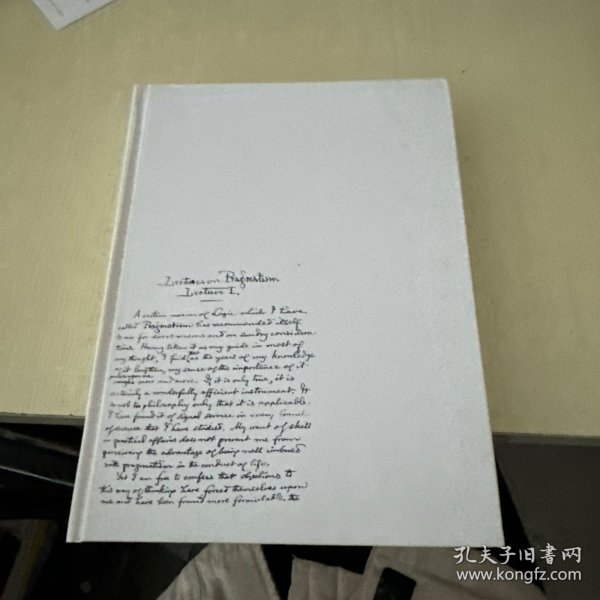 Lectures on Pragmatism
Lecture I.
A certain maxim of Logic which I have
called Pragmatism has recommended itself
to me for divers reasons and on sundry considera-
tions. Having taken it as my guide in most of
my thought, I find that as the years of my knowledge
of it lengthen, my sense of the importance of it
presses upon me more and more. If it is only true, it is
certainly a wonderfully efficient instrument. It
is not to philosophy only that it is applicable.
I have found it of signal service in every branch
of science that I have studied. My want of skill
in practical affairs does not prevent me from
perceiving the advantage of being well imbued
with pragmatism in the conduct of life.
Yet I am free to confess that objections to
this way of thinking have forced themselves upon
me and have been found more formidable the
孔夫子旧书网
www.kongfz.com